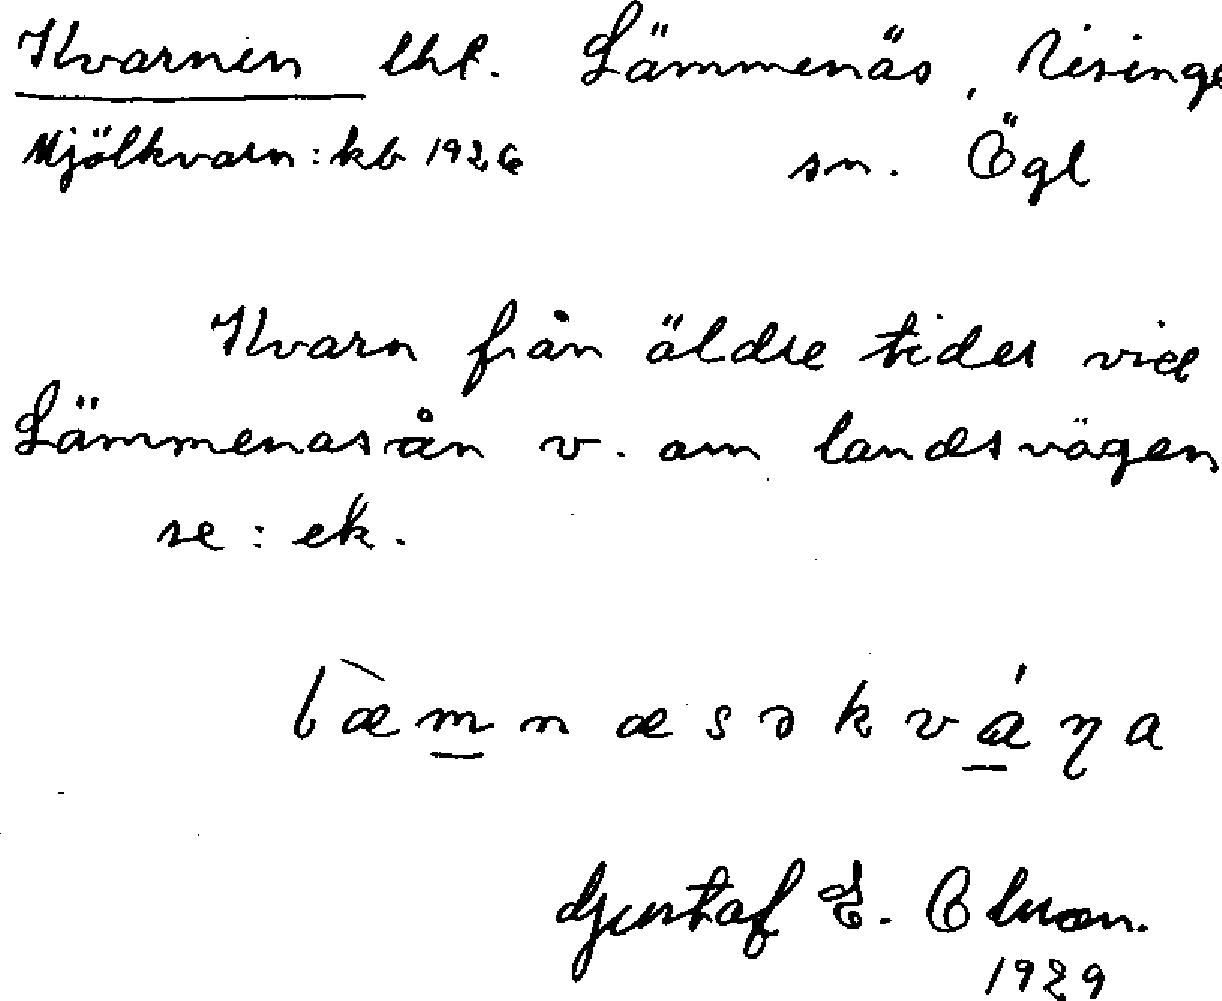 Kvarnen lht. Lämmenäs, Risinge
Mjölkvarn: kb 1926 sn. Ögl
Kvarn från äldre tider vid
Lämmenäsån v. om landsvägen
se: ek.
læ̀mnæsəkváɳa
Gustaf E. Olsson.
1929